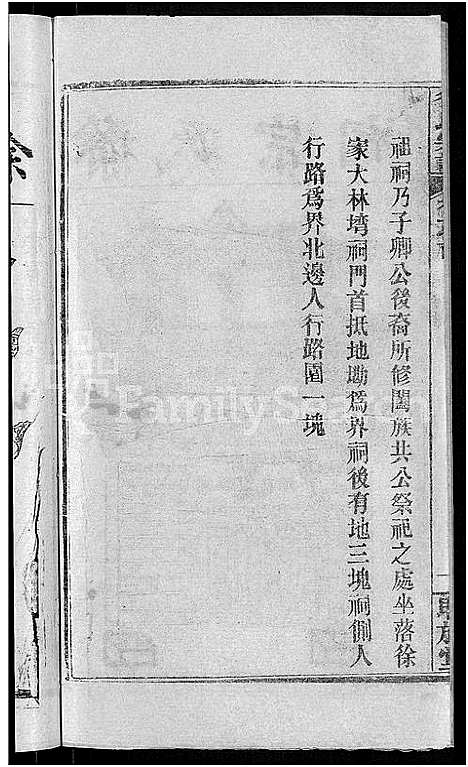 祖祠乃子卿公後裔所修闔族共公祭祀之處坐落徐
家大林塆祠門首抵地墈爲界祠後有地三塊祠側人
行路爲界北邊人行路園一塊
FamilySearch